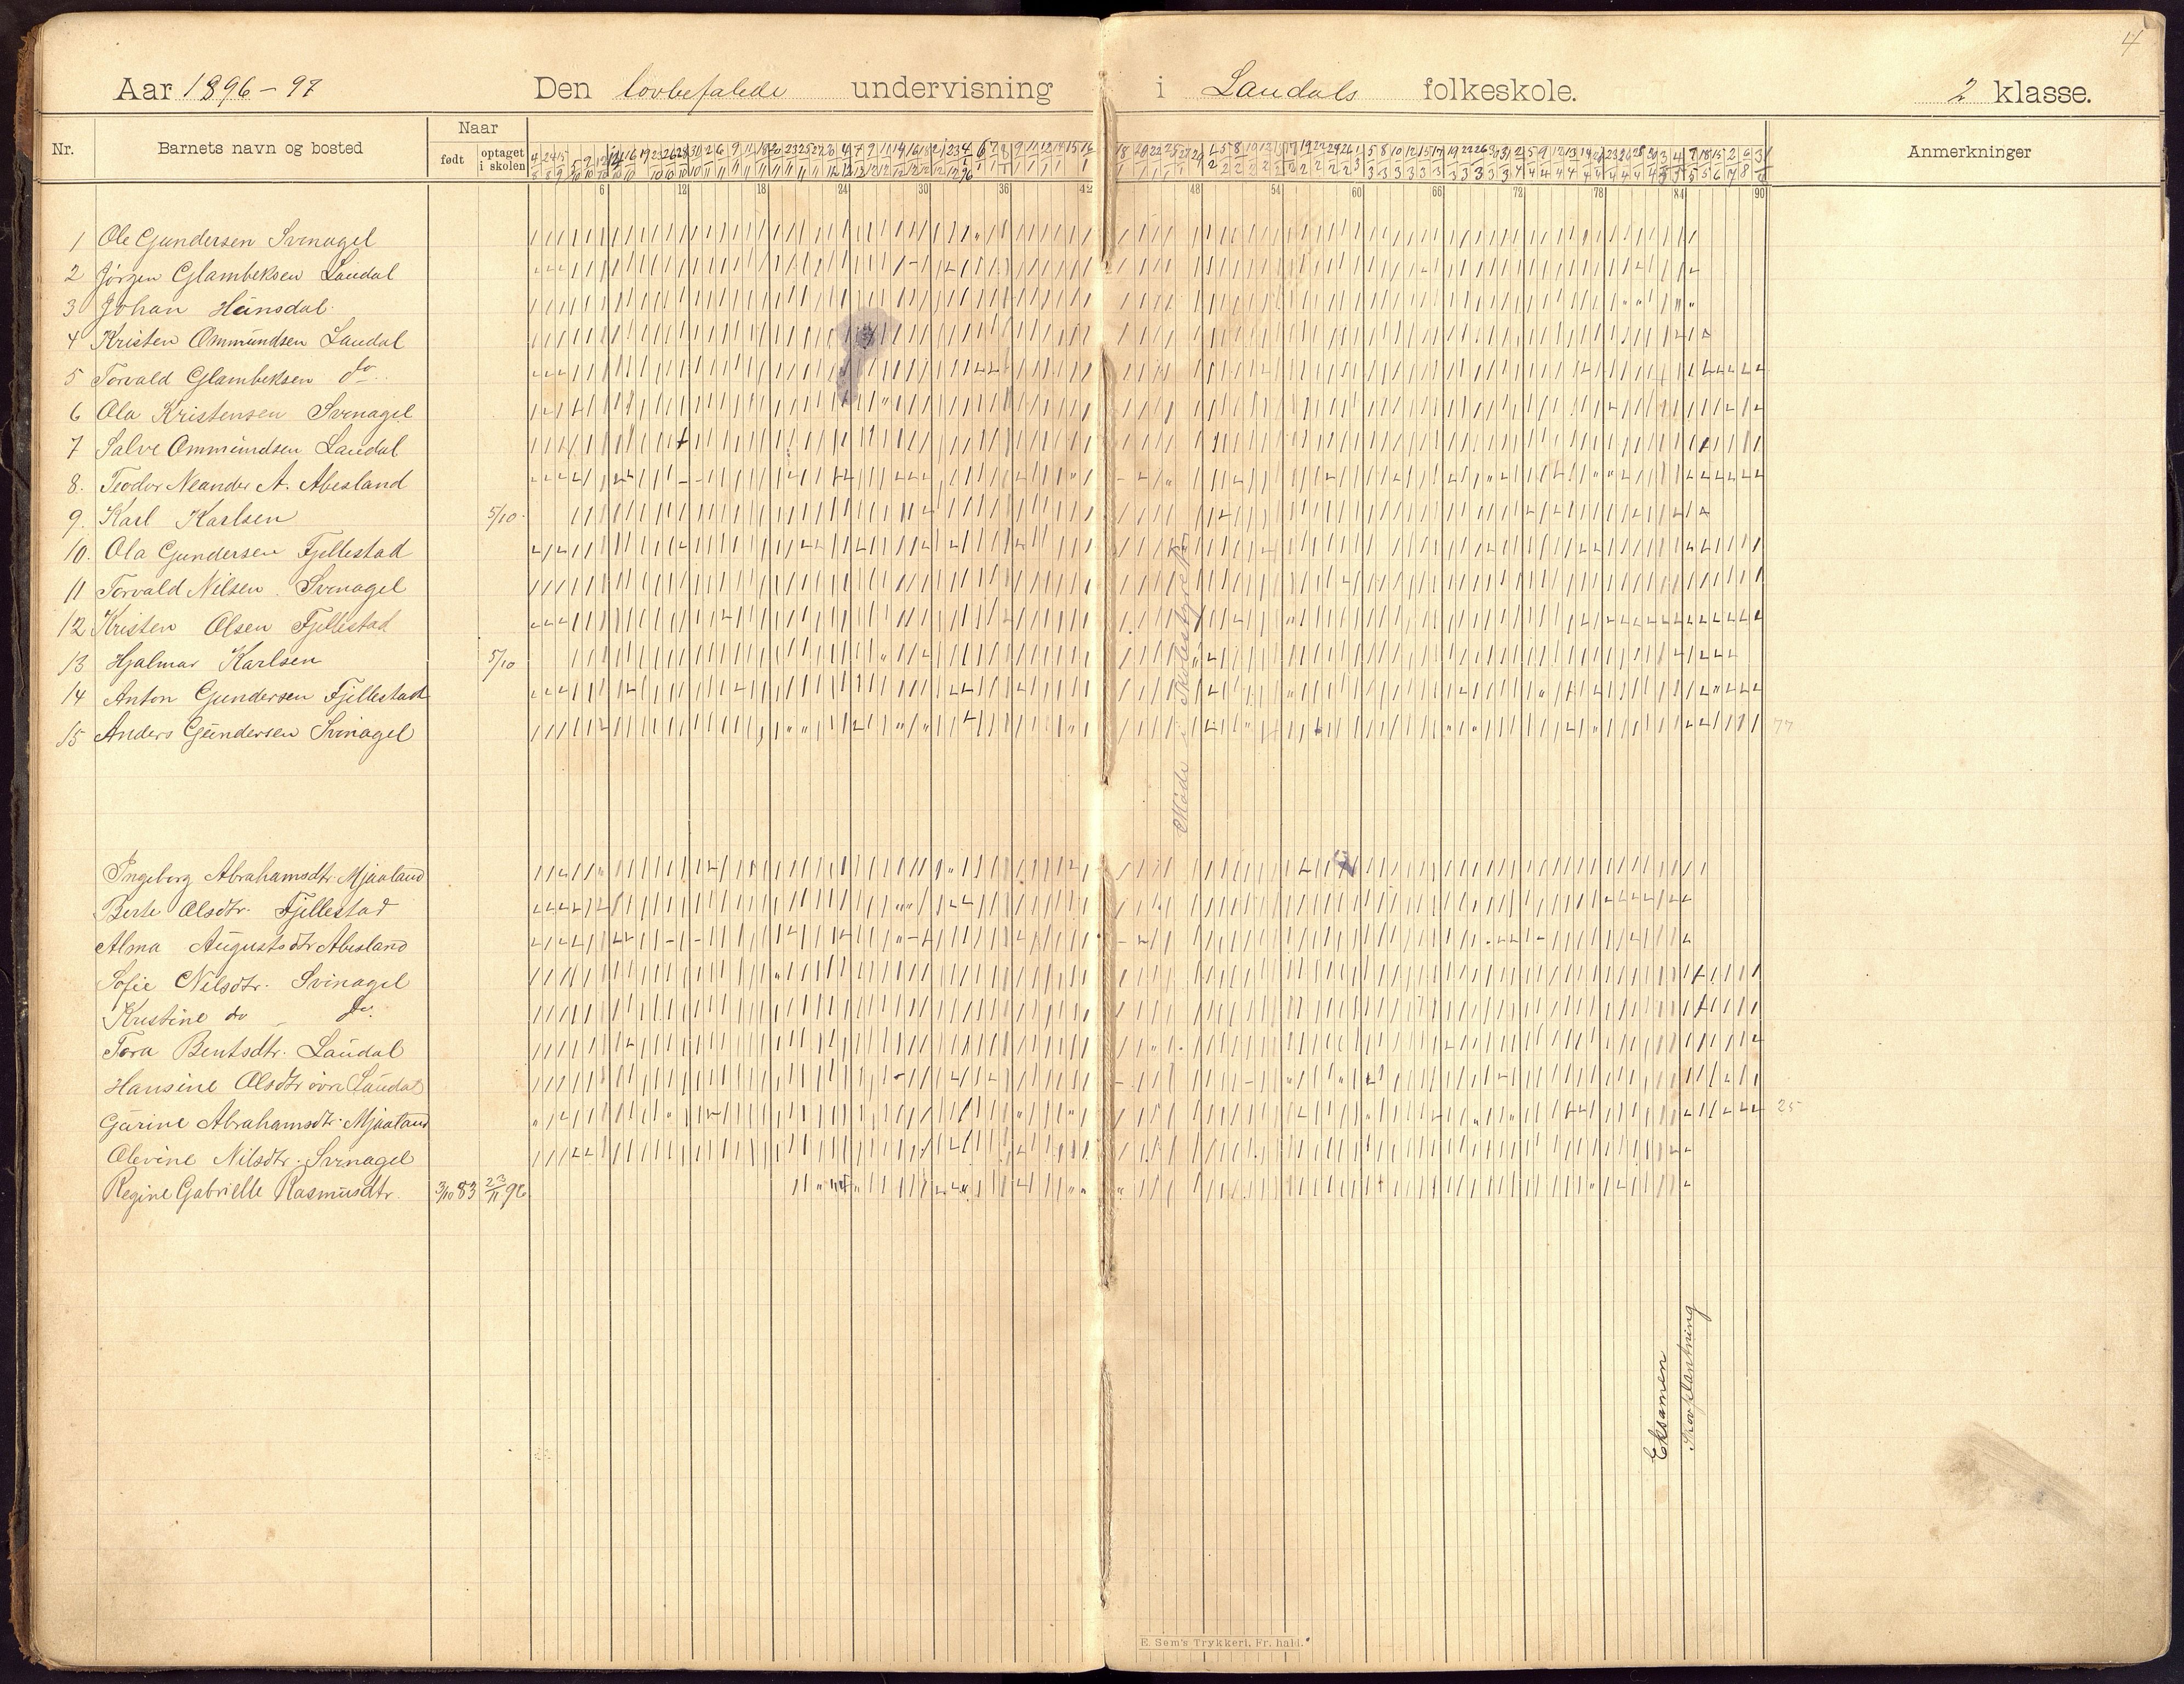 4
Aar 1896-97 Den lovbefalede undervisning i Laudals folkeskole. 2 klasse.
Nr. Barnets navn og bosted Naar født optaget i skolen Anmerkninger
6 12 18 24 30 36 42 48 54 60 66 72 78 84 90
1 Ole Gundersen Svinagel
2 Jörgen Glambeksen Laudal
3 Johan Heinsdal
4 Kristen Ommundsen Laudal
5 Torvald Glambeksen do
6 Ola Kristensen Svinagel
7 Salve Ommundsen Laudal
8. Teodor Neander A. Abesland
9. Karl Karlsen 5/10
10. Ola Gundersen Fjellestad
11 Torvald Nilsen Svinagel
12 Kristen Olsen Fjellestad
13 Hjalmar Karlsen 5/10
14 Anton Gundersen Fjellestad
15 Anders Gundersen Svinagel 77
Møde i Skolestyret
Ingeborg Abrahamsdtr. Mjaaland
Berte Olsdtr. Fjellestad
Alma Augustsdtr Abesland
Sofie Nilsdtr. Svinagel
Kristine do do.
Tora Bentsdtr. Laudal
Hansine Olsdtr övre Laudal
Gurine Abrahamsdtr. Mjaaland 25
Olevine Nilsdtr. Svinagel
Regine Gabrielle Rasmusdtr. 3/10 83 23/11 96
Eksamen
Skovplantning
E. Sem's Trykkeri, Fr. hald.